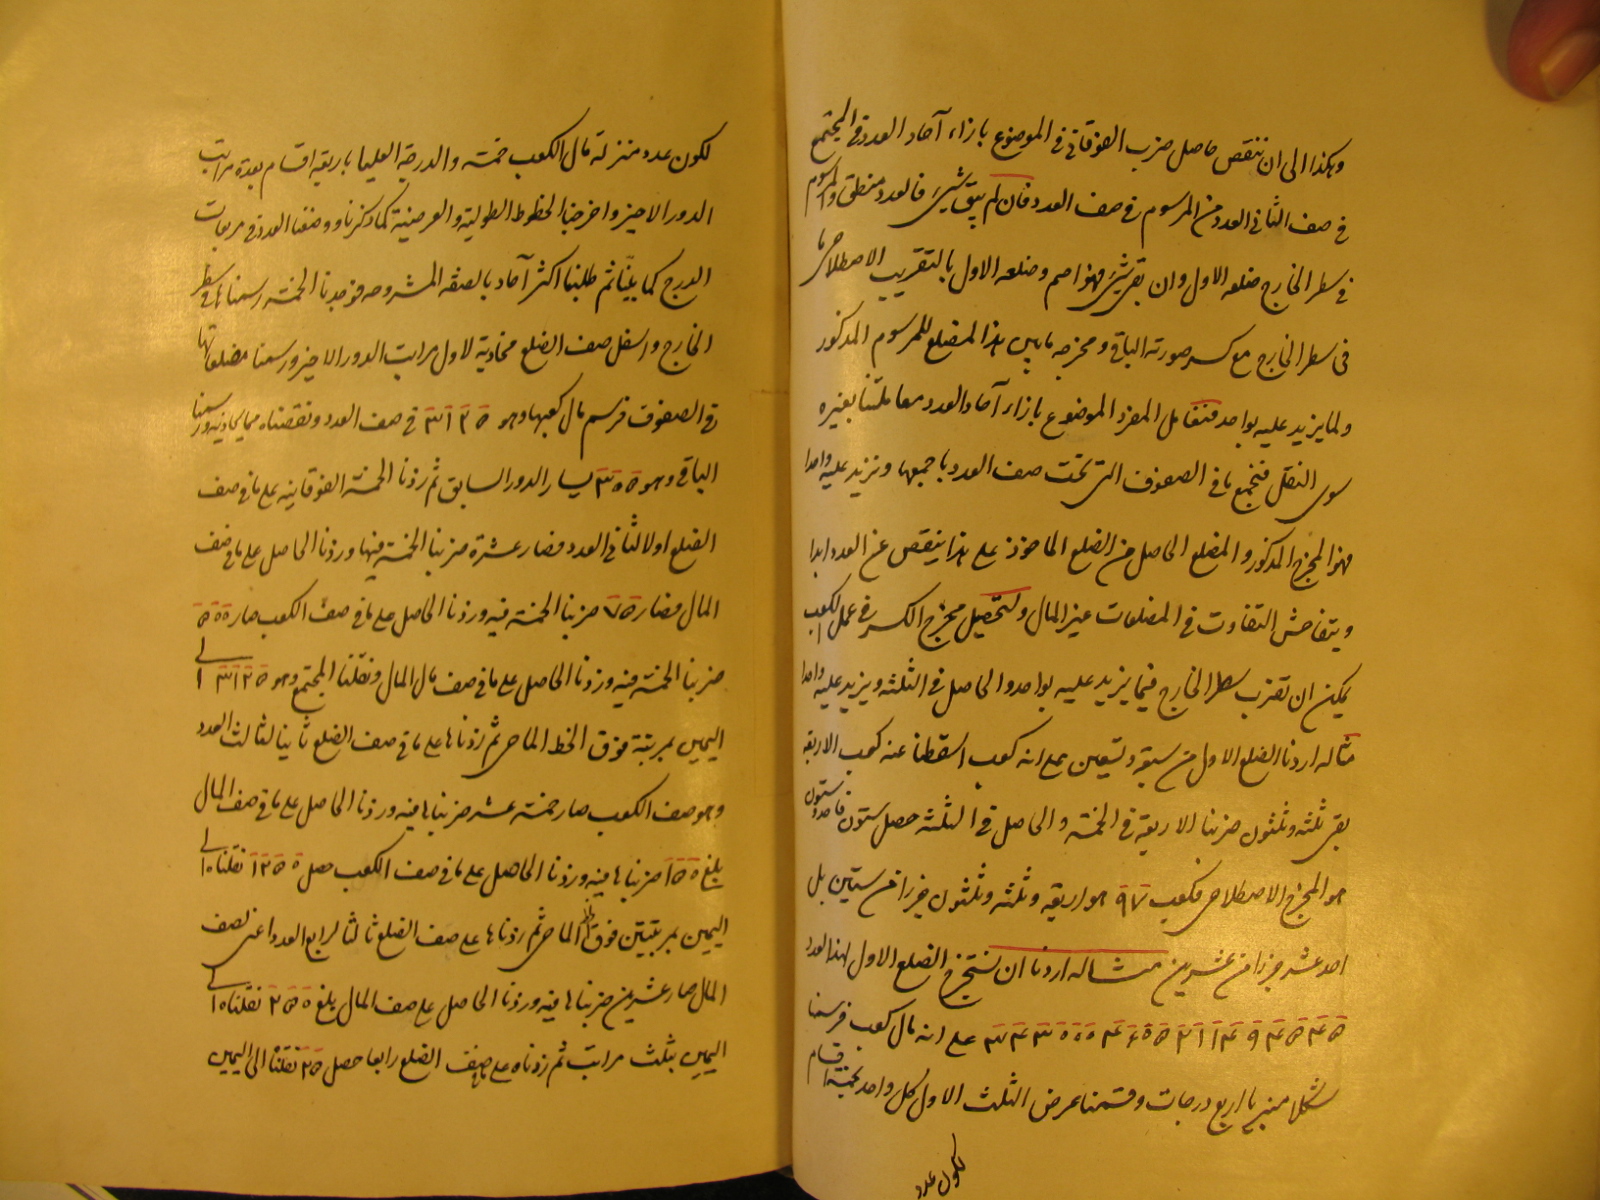 وهكذا الى ان ننقص حاصل ضرب الفوقاني في الموضوع بازاء آحاد العدد في المجتمع
في صف الثاني العدد من المرسوم في صف العدد فان لم يبق شيء فالعدد منطق والمرسوم
في سطر الخارج ضلعه الاول وان بقي شيء فهو اصم وضلعه الاول بالتقريب الاصطلاحي ما
في سطر الخارج مع كسر صورته الباقي ومخرجه ما بين هذا المضلع للمرسوم المذكور
ولما يزيد عليه بواحد فنعامل المفرد الموضوع بازاء آحاد العدد معاملتنا بغيره
سوى النقل فنجمع ما في الصفوف التي تحت صف العدد باجمعها ونزيد عليه واحدا
فهو المخرج المذكور والمضلع الحاصل من الضلع الماخوذ على هذا ينقص عن العدد ابدا
ويتفاحش التفاوت في المضلعات غير المال ولتحصيل مخرج الكسر في عمل الكعب
يمكن ان تضرب سطر الخارج فيما يزيد عليه بواحد والحاصل في الثلثة ويزيد عليه واحدا
مثاله اردنا الضلع الاول من سبعة وتسعين على انه كعب اسقطنا عنه كعب الاربعة
بقي ثلثة وثلثون ضربنا الاربعة في الخمسة والحاصل في الثلثة حصل ستون فاحد وستون
هو المخرج الاصطلاحي فكعب ٩٧ هو اربعة وثلثة وثلثون جزرا من ستين بل
احد عشر جزرا من عشرين مثاله اردنا ان نستخرج الضلع الاول لهذا العدد
على انه مال كعب فرسمنا
شكلا منبريا اربع درجات وقسمنا عرض الثلث الاول كل واحد بخمسة اقسام
لكون عدد
لكون عدد منزلة مال الكعب خمسة والدرجة العليا باربعة اقسام بعدة مراتب
الدور الاخير واخرجنا الخطوط الطولية والعرضية كما ذكرنا ووضعنا العدد في مربعات
الدرج كما بيّنا ثم طلبنا اكثر آحاد بالصفة المشروحة فوجدنا الخمسة رسمناها في سطر
الخارج واسفل صف الضلع محاذية لاول مراتب الدور الاخير ورسمنا مضلعاتها
في الصفوف فرسم مال كعبها وهو ٣١٢٥ في صف العدد ونقصناه مما يحاذيه ورسمنا
الباقي وهو ٣٥٥ يسار الدور السابق ثم زدنا الخمسة الفوقانية على ما في صف
الضلع اولا لثاني العدد فصار عشرة ضربنا الخمسة فيها وزدنا الحاصل على ما في صف
المال فصار ٧٥ ضربنا الخمسة فيه وزدنا الحاصل على ما في صف الكعب صار ٥٠٠
ضربنا الخمسة فيه وزدنا الحاصل على ما في صف مال المال ونقلنا المجتمع وهو ٣١٢٥ الى
اليمين بمرتبة فوق الخط الماحي ثم زدناها على ما في صف الضلع ثانيا لثالث العدد
وهو صف الكعوب صار خمسة عشر ضربناها فيه وزدنا الحاصل على ما في صف المال
بلغ ١٥٠ ضربناها فيه وزدنا الحاصل على ما في صف الكعب حصل ١٢٥٠ نقلناه الى
اليمين بمرتبتين فوق الماحي ثم زدناها على صف الضلع ثالثا لرابع العدد اعني لصف
المال صار عشرين ضربناها فيه وزدنا الحاصل على صف المال بلغ ٢٥٠ نقلناه الى
اليمين بثلث مراتب ثم زدناه على صف الضلع رابعا حصل ٢٥ نقلنا الى اليمين